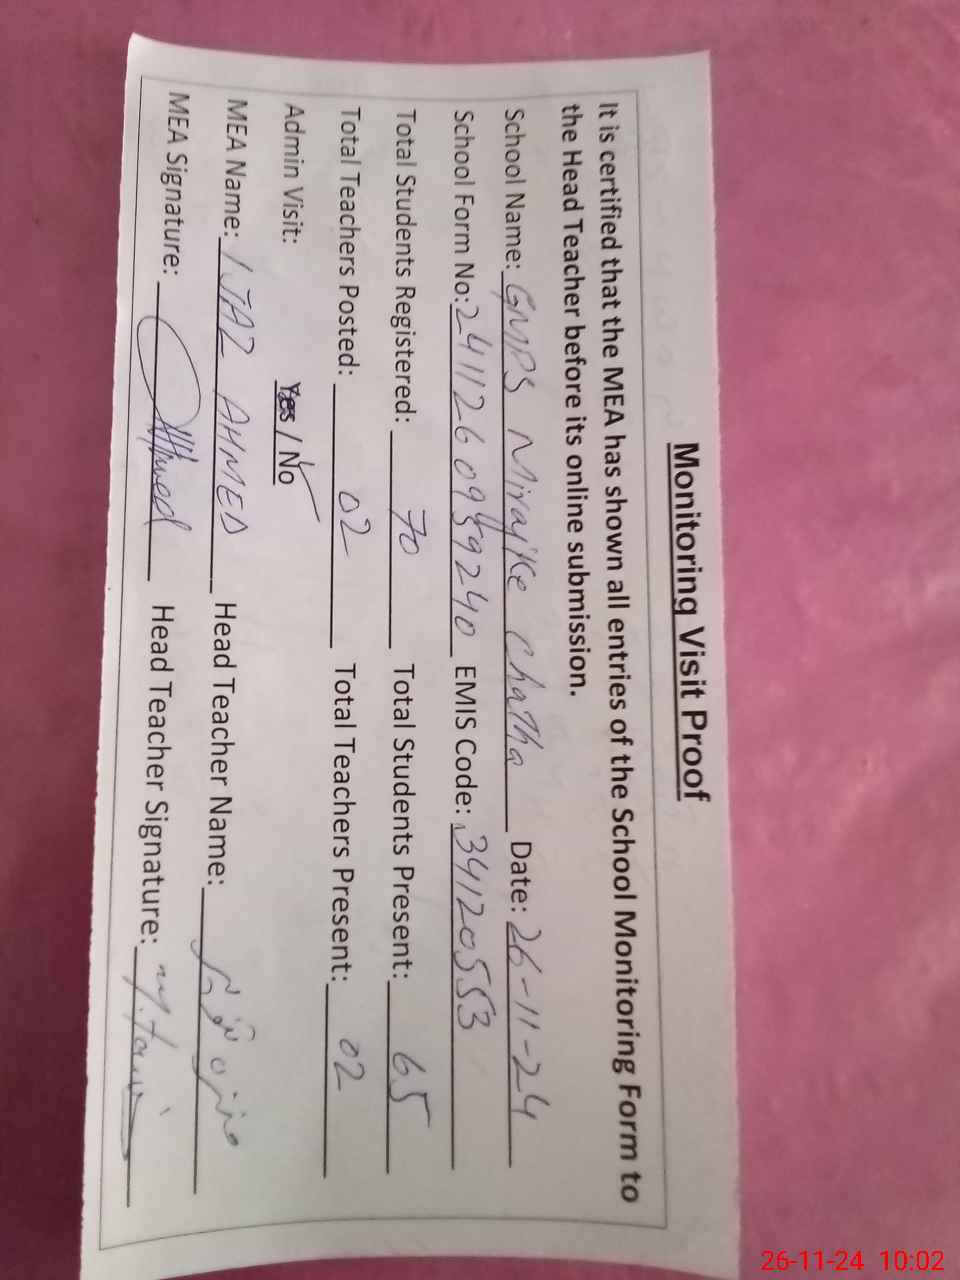 Monitoring Visit Proof
It is certified that the MEA has shown all entries of the School Monitoring Form to
the Head Teacher before its online submission.
School Name: GMPS Mirajke Chatha Date: 26-11-24
School Form No: 2411126 0959240 EMIS Code: 34120553
Total Students Registered: 70 Total Students Present: 65
Total Teachers Posted: 02 Total Teachers Present: 02
Admin Visit: Yes / No
MEA Name: IJAZ AHMED Head Teacher Name:
MEA Signature: Head Teacher Signature:
26-11-24 10:02